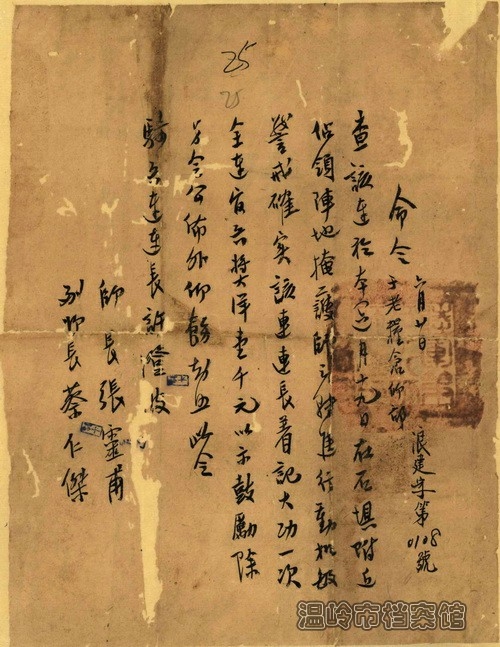 25
25
命令 六月廿日
于老罐倉師部 浪建字第0108號
查該連於本(六)月十九日在石壩附近
佔領陣地掩護師主力進行動機敏
警戒確實該連連長着記大功一次
全連官兵獎大洋壹千元以示鼓勵除
分令公佈外仰飭知照此令
騎兵連連長許澄波
師長張靈甫
副師長蔡仁傑
温岭市档案馆